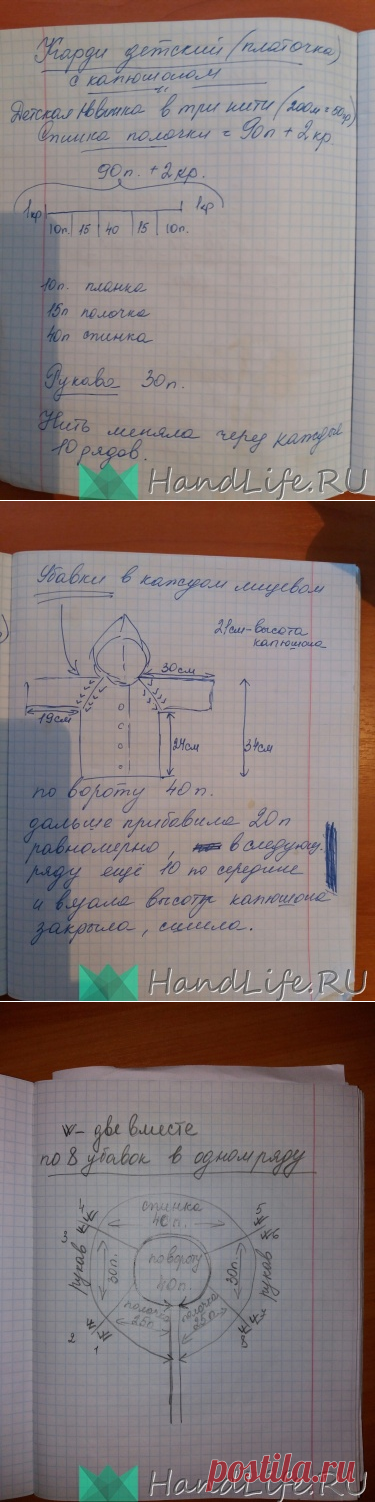 Карди детский (платочка)
с капюшоном
Детская Новинка в три нити (200м=50гр)
Спинка полочки = 90п + 2кр.
90п. + 2кр.
1кр 1кр
10п. 15 40 15 10п.
10п. планка
15п полочка
40п спинка
Рукава 30п.
Нить меняла через каждые
10 рядов.
HandLife.RU
Убавки в каждом лицевом
21см-высота
капюшона
30см
19см
24см
34см
по вороту 40п.
дальше прибавила 20п
равномерно, в следующ.
ряду ещё 10 по середине
и вязала высоту капюшона
закрыла, сшила.
HandLife.RU
- две вместе
по 8 убавок в одном ряду
спинка
40п.
4 5
3 6
рукав 30п. по вороту 40п. 30п. рукав
полочка 25п. полочка 25п.
2
1
HandLife.RU
postila.ru